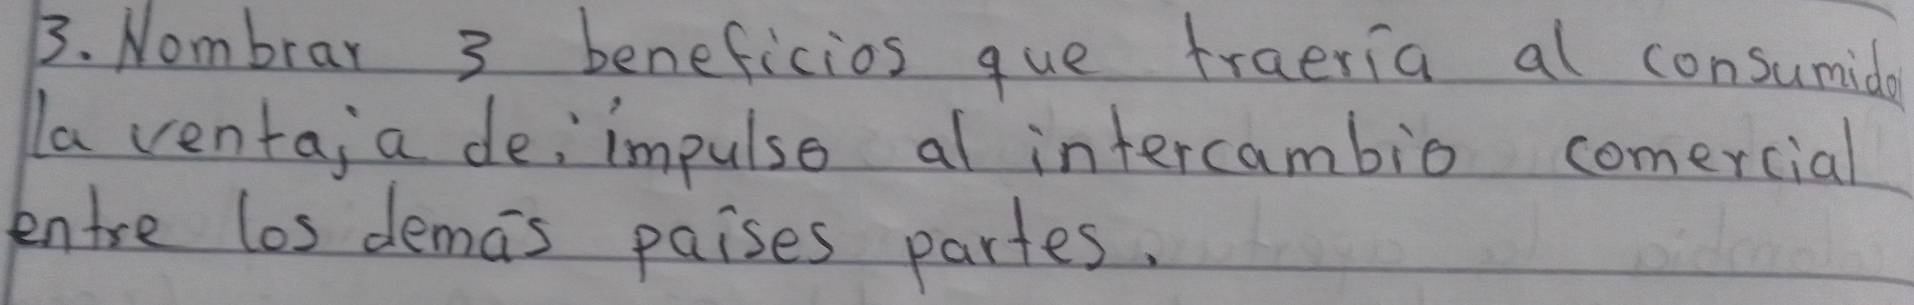 3. Nombrar 3 beneficios que traería al consumidor
la ventaja de: impulso al intercambio comercial
entre los demás países partes.